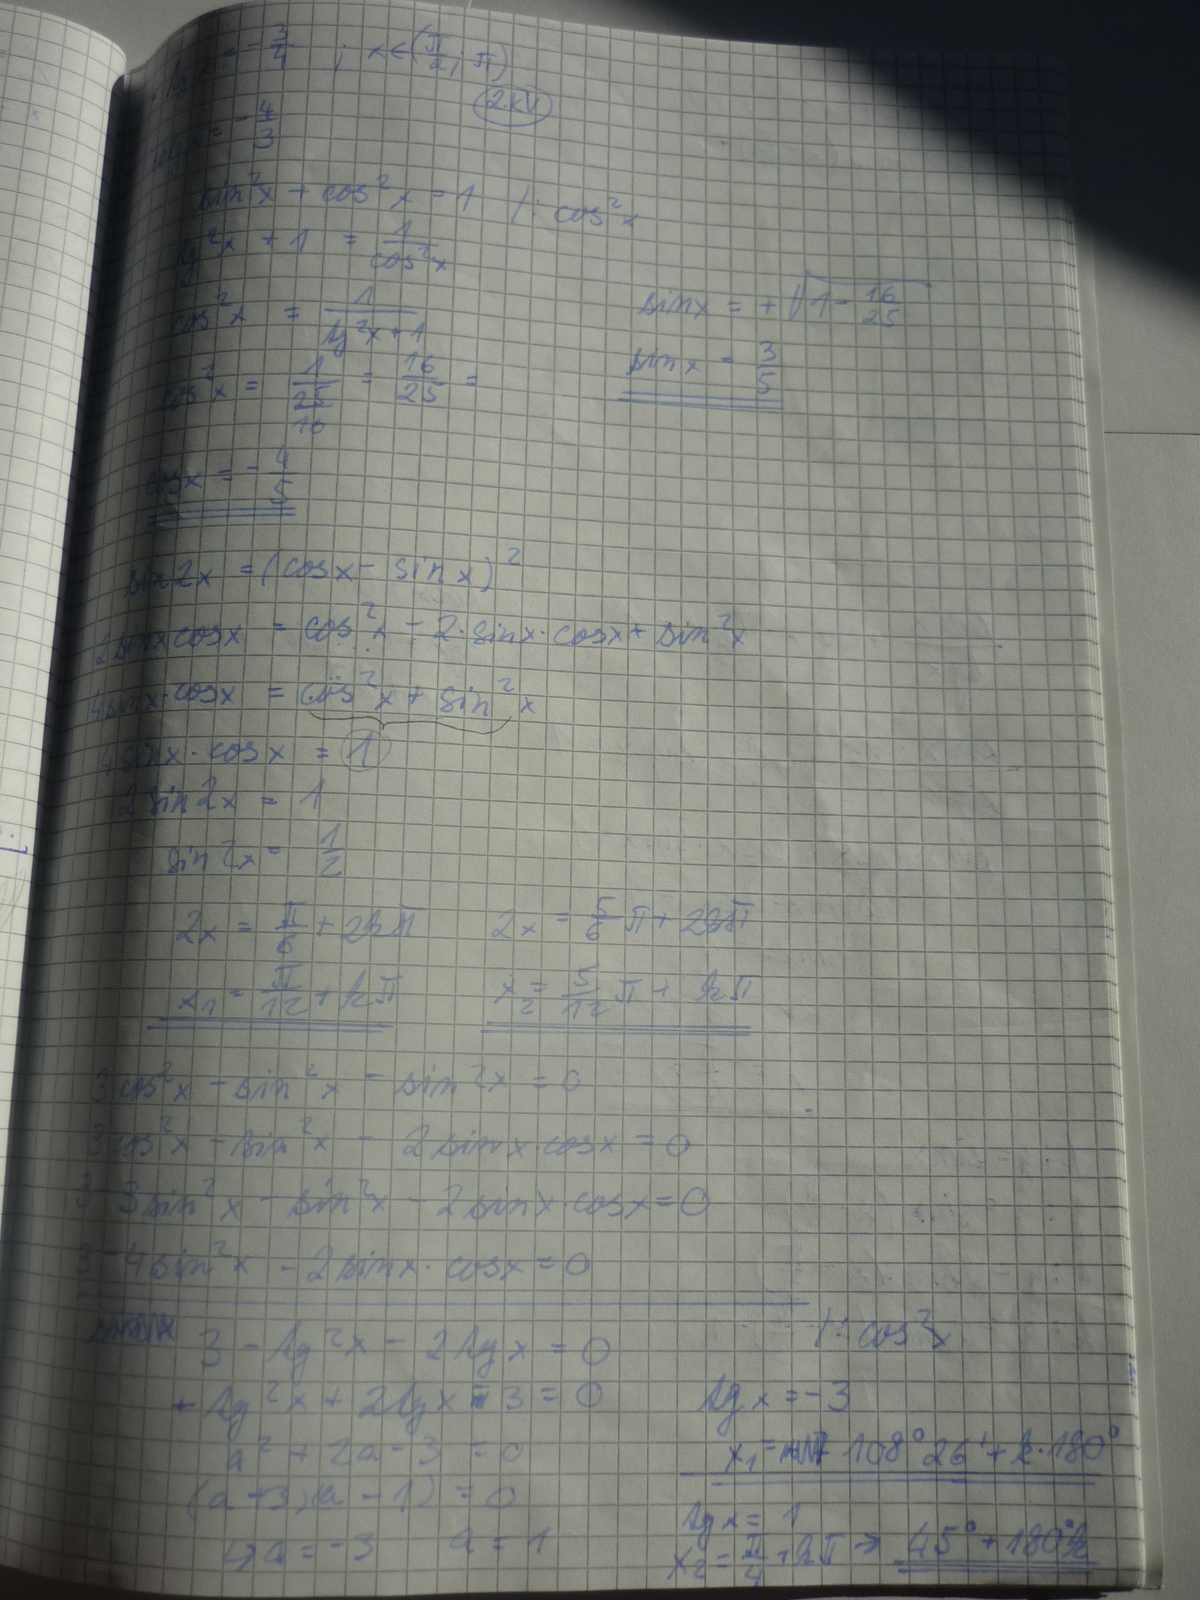 tg x = -3/4 ; x∈(π/2; π)
2.kV
cotg x = -4/3
sin²x + cos²x = 1 /: cos²x
tg²x + 1 = 1/cos²x
cos²x = 1/(tg²x+1)
sin x = +√(1 - 16/25)
cos²x = 1/(25/16) = 16/25 =
sin x = 3/5
cos x = -4/5
sin 2x = (cos x - sin x)²
2 sin x cos x = cos²x - 2·sin x·cos x + sin²x
4 sin x·cos x = cos²x + sin²x
4 sin x·cos x = 1
2 sin 2x = 1
sin 2x = 1/2
2x = π/6 + 2kπ 2x = 5/6 π + 2kπ
x₁ = π/12 + kπ x₂ = 5/12 π + kπ
3cos²x - sin²x - sin 2x = 0
3cos²x - sin²x - 2 sin x cos x = 0
3 - 3sin²x - sin²x - 2 sin x·cos x = 0
3 - 4sin²x - 2 sin x·cos x = 0
/: cos²x
3 - tg²x - 2tg x = 0
+ tg²x + 2tg x - 3 = 0
tg x = -3
a² + 2a - 3 = 0
x₁ = 108° 26' + k·180°
(a+3)(a-1) = 0
tg x = 1
↳ a = -3 a = 1
x₂ = π/4 + kπ → 45° + 180°k